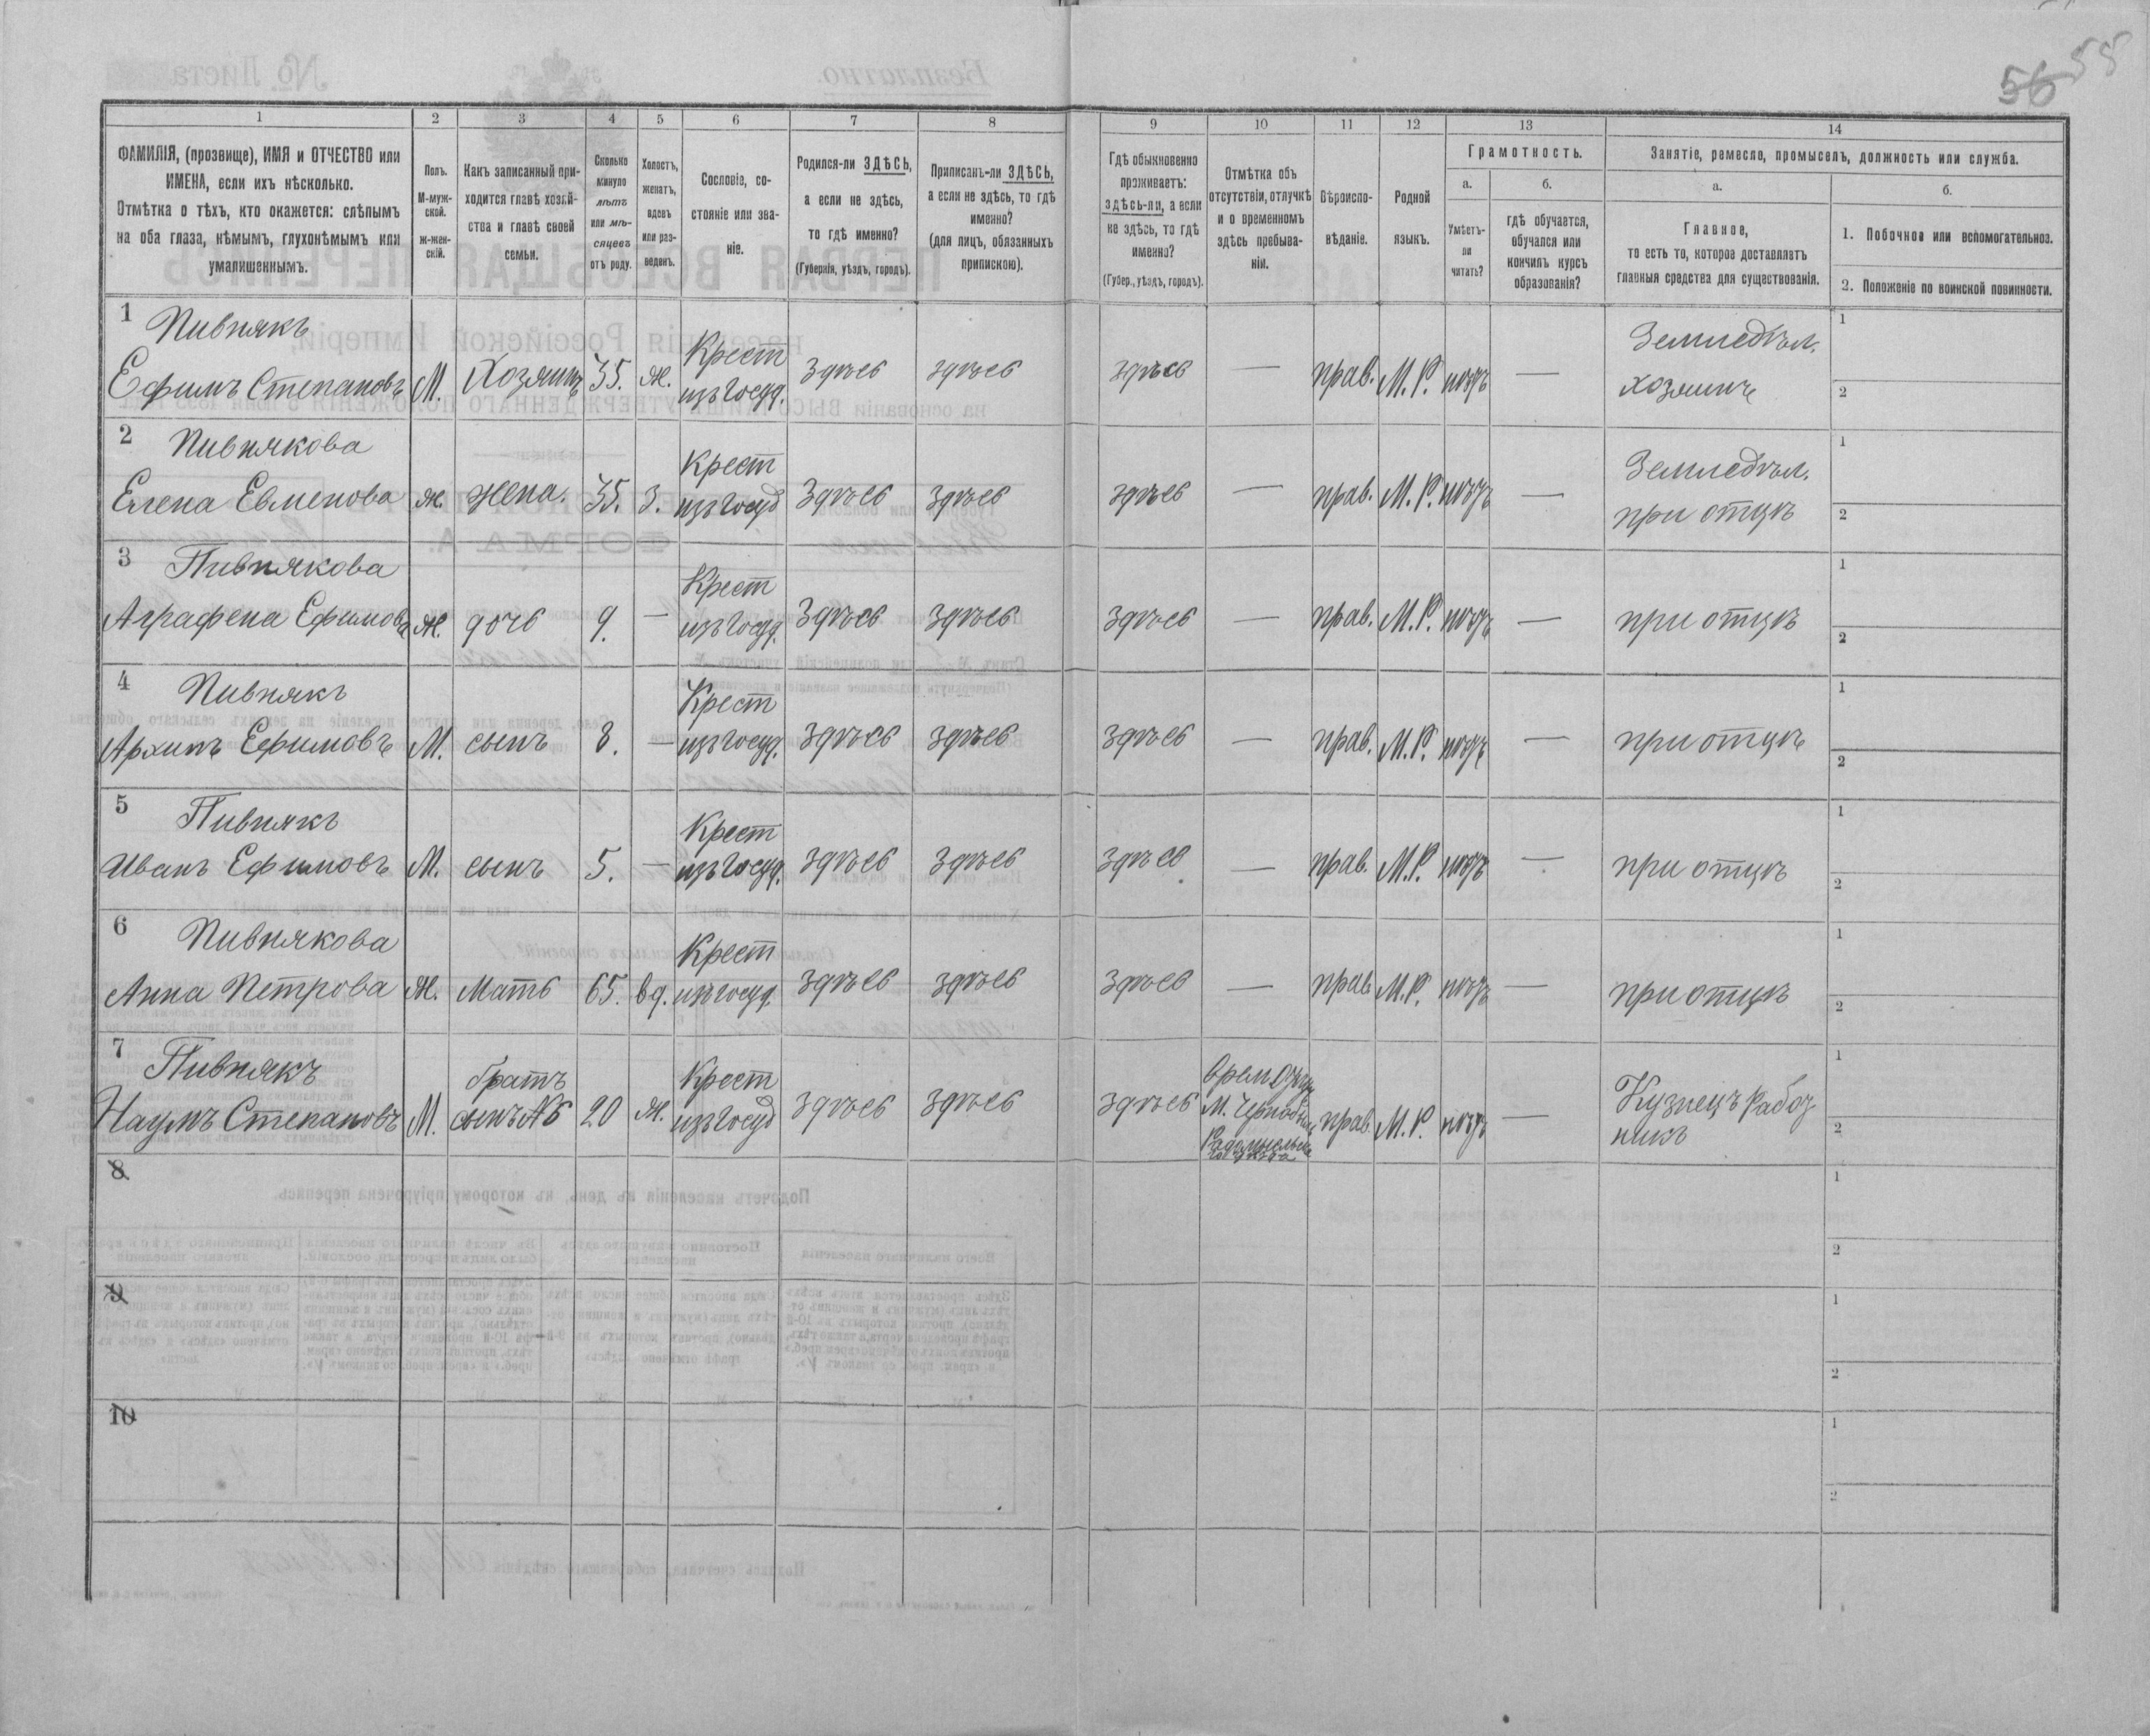 56 55
1 2 3 4 5 6 7 8 9 10 11 12 13 14
ФАМИЛІЯ, (прозвище), ИМЯ и ОТЧЕСТВО или
ИМЕНА, если ихъ нѣсколько.
Отмѣтка о тѣхъ, кто окажется: слѣпымъ
на оба глаза, нѣмымъ, глухонѣмымъ или
умалишеннымъ.
Полъ.
М-муж-
ской.
Ж-жен-
скій.
Какъ записанный при-
ходится главѣ хозяй-
ства и главѣ своей
семьи.
Сколько
минуло
лѣтъ
или мѣ-
сяцевъ
отъ роду.
Холостъ,
женатъ,
вдовъ
или раз-
веденъ.
Сословіе, со-
стояніе или зва-
ніе.
Родился-ли ЗДѢСЬ,
а если не здѣсь,
то гдѣ именно?
(Губернія, уѣздъ, городъ).
Приписанъ-ли ЗДѢСЬ,
а если не здѣсь, то гдѣ
именно?
(для лицъ, обязанныхъ
припискою).
Гдѣ обыкновенно
проживаетъ:
здѣсь-ли, а если
не здѣсь, то гдѣ
именно?
(Губер., уѣздъ, городъ).
Отмѣтка объ
отсутствіи, отлучкѣ
и о временномъ
здѣсь пребыва-
ніи.
Вѣроиспо-
вѣданіе.
Родной
языкъ.
Грамотность.
а.
Умѣетъ-
ли
читать?
б.
гдѣ обучается,
обучался или
кончилъ курсъ
образованія?
Занятіе, ремесло, промыселъ, должность или служба.
а.
Главное,
то есть то, которое доставляетъ
главныя средства для существованія.
б.
1. Побочное или вспомогательное.
2. Положеніе по воинской повинности.
1 Пивнякъ Крест Земледѣл. 1
Ефимъ Степановъ М. Хозяинъ 35. ж. изъ госуд. Здѣсь здѣсь здѣсь — прав. М.Р. нѣтъ — хозяинъ 2
2 Пивнякова Крест Земледѣл. 1
Елена Евменова ж. жена. 35. З. изъ госуд Здѣсь здѣсь здѣсь — прав. М.Р. нѣтъ — при отцѣ 2
3 Пивнякова Крест 1
Аграфена Ефимова ж. дочь 9. — изъ госуд. Здѣсь здѣсь здѣсь — прав. М.Р. нѣтъ — при отцѣ 2
4 Пивнякъ Крест 1
Архипъ Ефимовъ М. сынъ 8. — изъ госуд. здѣсь здѣсь здѣсь — прав. М.Р. нѣтъ — при отцѣ 2
5 Пивнякъ Крест 1
Иванъ Ефимовъ М. сынъ 5. — изъ госуд. здѣсь здѣсь здѣсь — прав. М.Р. нѣтъ — при отцѣ 2
6 Пивнякова Крест 1
Анна Петрова Ж. Мать 65. вд. изъ госуд. здѣсь здѣсь здѣсь — прав М.Р. нѣтъ — при отцѣ 2
7 Пивнякъ братъ Крест 1
Наумъ Степановъ М. сынъ №6 20 ж. изъ госуд здѣсь здѣсь здѣсь М. Чернобыль Радомысльска го уѣзда прав. М.Р. нѣтъ — Кузнецъ работ никъ 2
8 1
2
9 1
2
10 1
2